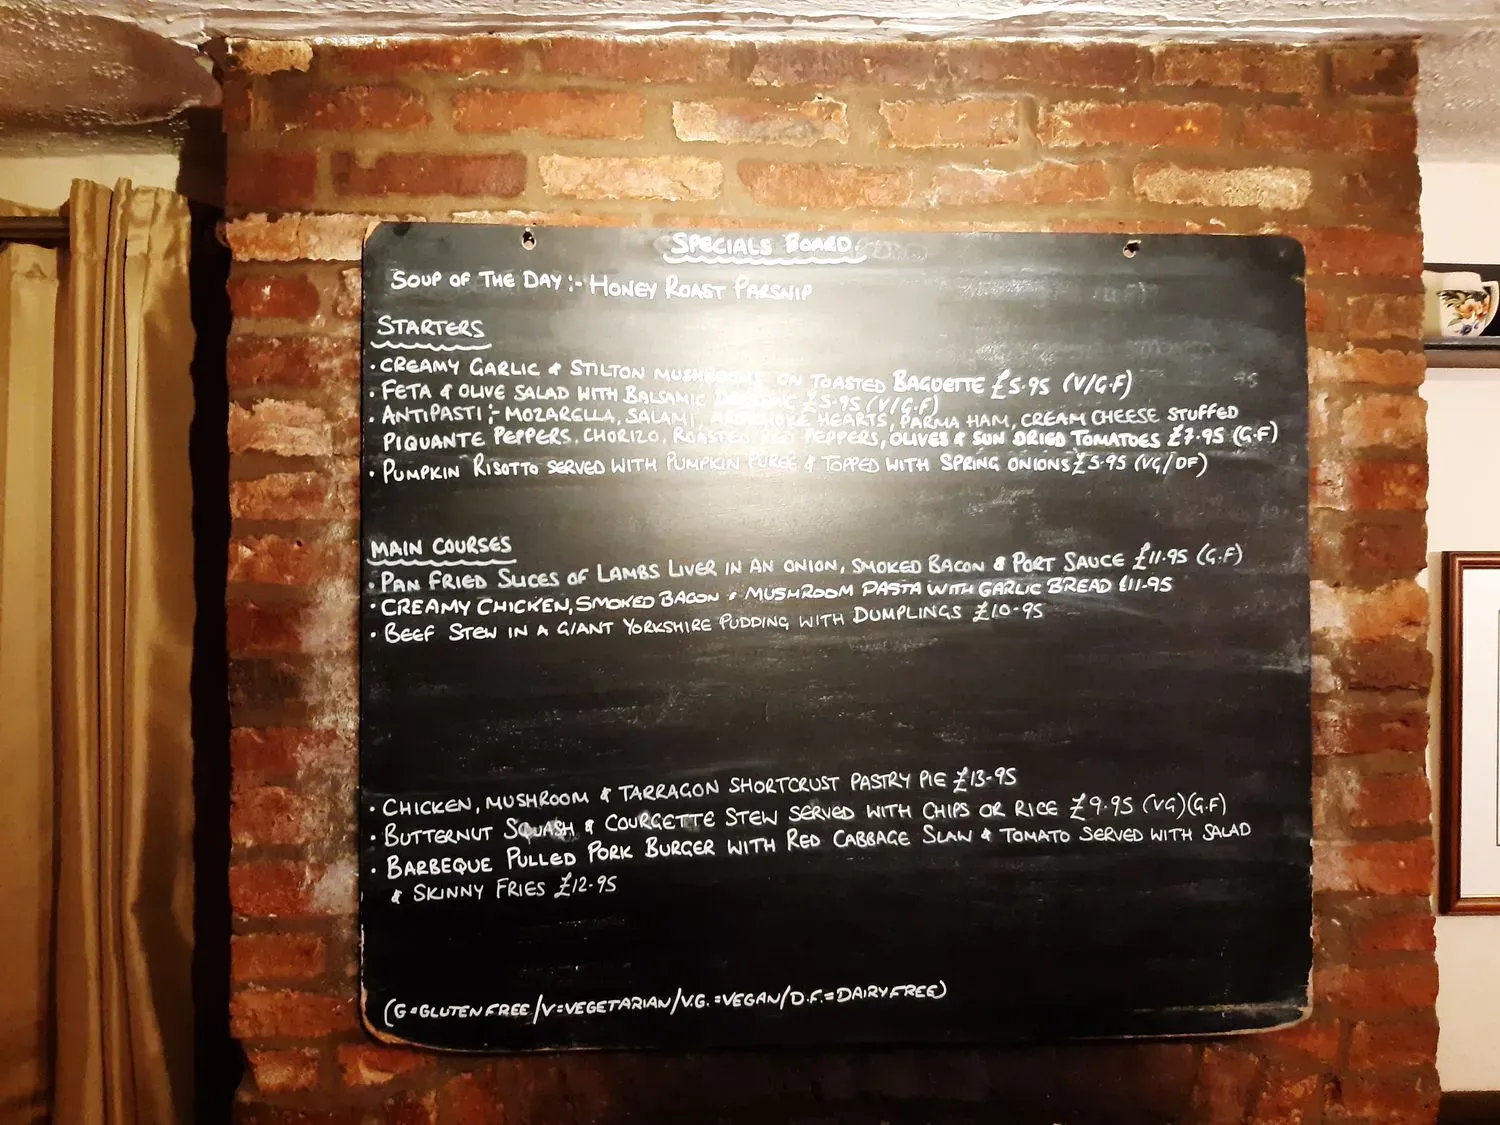 SPECIALS BOARD
SOUP OF THE DAY :- HONEY ROAST PARSNIP
STARTERS
• CREAMY GARLIC & STILTON MUSHROOMS ON TOASTED BAGUETTE £5.95 (V/G.F)
• FETA & OLIVE SALAD WITH BALSAMIC DRESSING £5.95 (V/G.F)
• ANTIPASTI :- MOZARELLA, SALAMI, ARTICHOKE HEARTS, PARMA HAM, CREAM CHEESE STUFFED
PIQUANTE PEPPERS, CHORIZO, ROASTED RED PEPPERS, OLIVES & SUN DRIED TOMATOES £7.95 (G.F)
• PUMPKIN RISOTTO SERVED WITH PUMPKIN PUREE & TOPPED WITH SPRING ONIONS £5.95 (VG/DF)
MAIN COURSES
• PAN FRIED SLICES OF LAMBS LIVER IN AN ONION, SMOKED BACON & PORT SAUCE £11.95 (G.F)
• CREAMY CHICKEN, SMOKED BACON & MUSHROOM PASTA WITH GARLIC BREAD £11.95
• BEEF STEW IN A GIANT YORKSHIRE PUDDING WITH DUMPLINGS £10.95
• CHICKEN, MUSHROOM & TARRAGON SHORTCRUST PASTRY PIE £13.95
• BUTTERNUT SQUASH & COURGETTE STEW SERVED WITH CHIPS OR RICE £9.95 (VG)(G.F)
• BARBEQUE PULLED PORK BURGER WITH RED CABBAGE SLAW & TOMATO SERVED WITH SALAD
& SKINNY FRIES £12.95
(G=GLUTEN FREE/V=VEGETARIAN/V.G.=VEGAN/D.F.=DAIRY FREE)